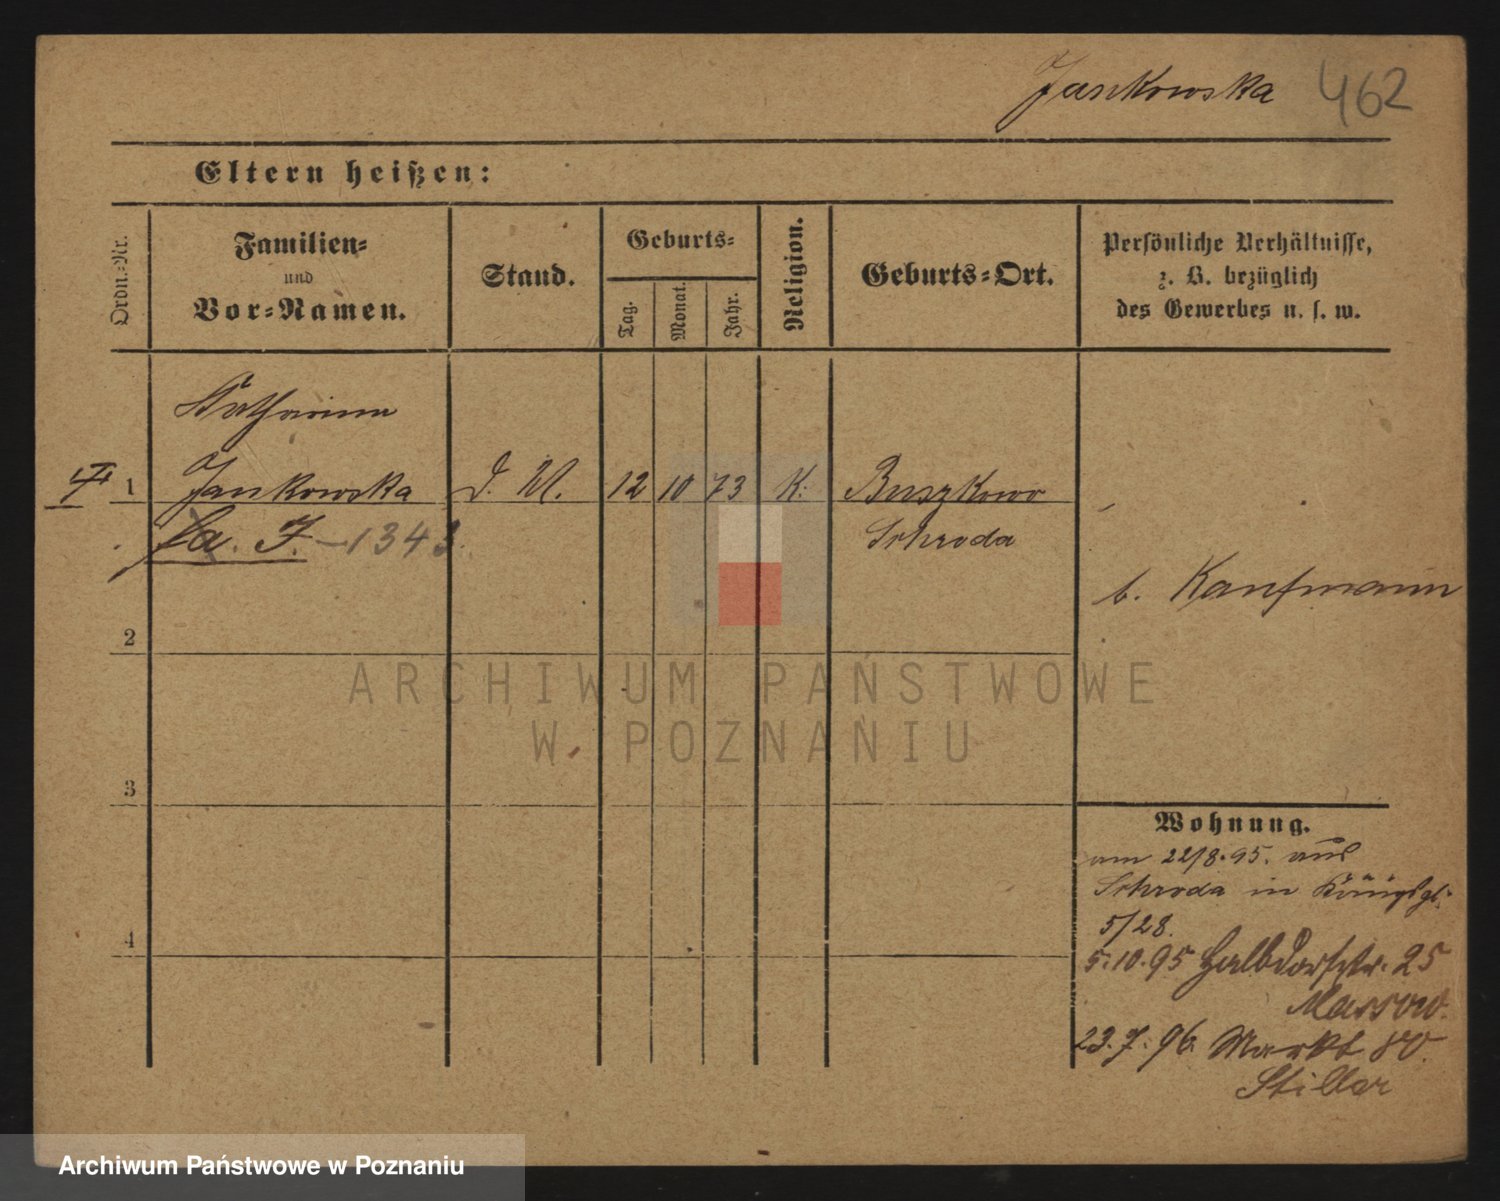 Jankowska 462
Eltern heißen:
Ordn.-Nr.
Familien-
und
Vor-Namen.
Stand.
Geburts-
Tag.
Monat.
Jahr.
Religion.
Geburts-Ort.
Persönliche Verhältnisse,
z. B. bezüglich
des Gewerbes u. s. w.
Katharina
1 Jankowska D. M. 12 10 73 K. Buszkowo
Schroda
J. - 1343
b. Kaufmann
2
3
4
Wohnung.
am 22/8.95. aus
Schroda in Königspl.
5/28.
5.10.95 Halbdorfstr. 25
Massow.
23.7.96. Markt 80.
Stiller
ARCHIWUM PAŃSTWOWE
W POZNANIU
Archiwum Państwowe w Poznaniu